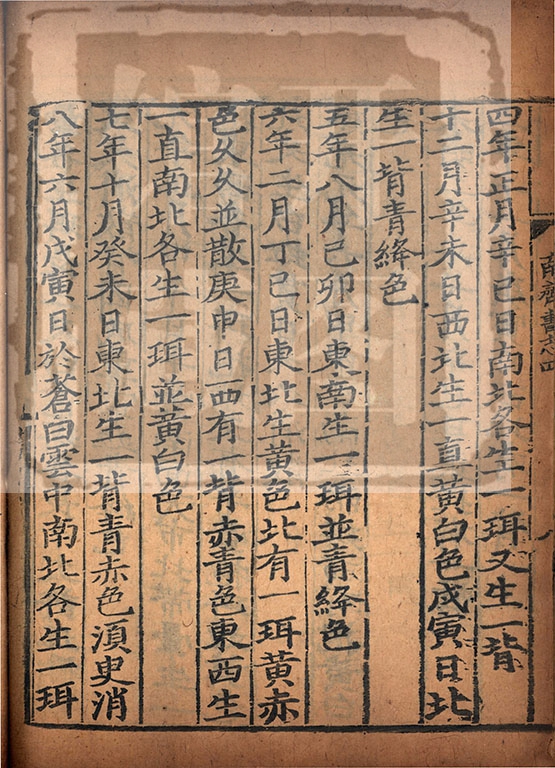 四年正月辛巳日南北各生一珥又生一背
十二月辛未日西北生一直黃白色戊寅日北
生一背青絳色
五年八月己卯日東南生一珥並青絳色
六年二月丁巳日東北生黃色北有一珥黃赤
色久久並散庚申日西有一背赤青色東西生
一直南北各生一珥並黃白色
七年十月癸未日東北生一背青赤色須臾消
八年六月戊寅日於蒼白雲中南北各生一珥